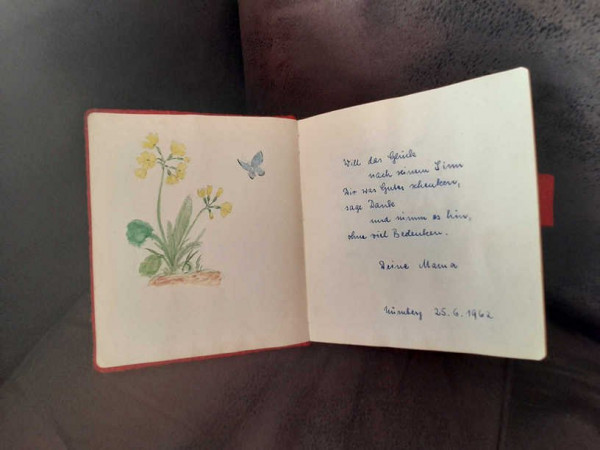 Will das Glück
nach seinem Sinn
Dir was Gutes schenken,
sage Danke
und nimm es hin,
ohne viel Bedenken.
Deine Mama
Nürnberg 25.6.1962